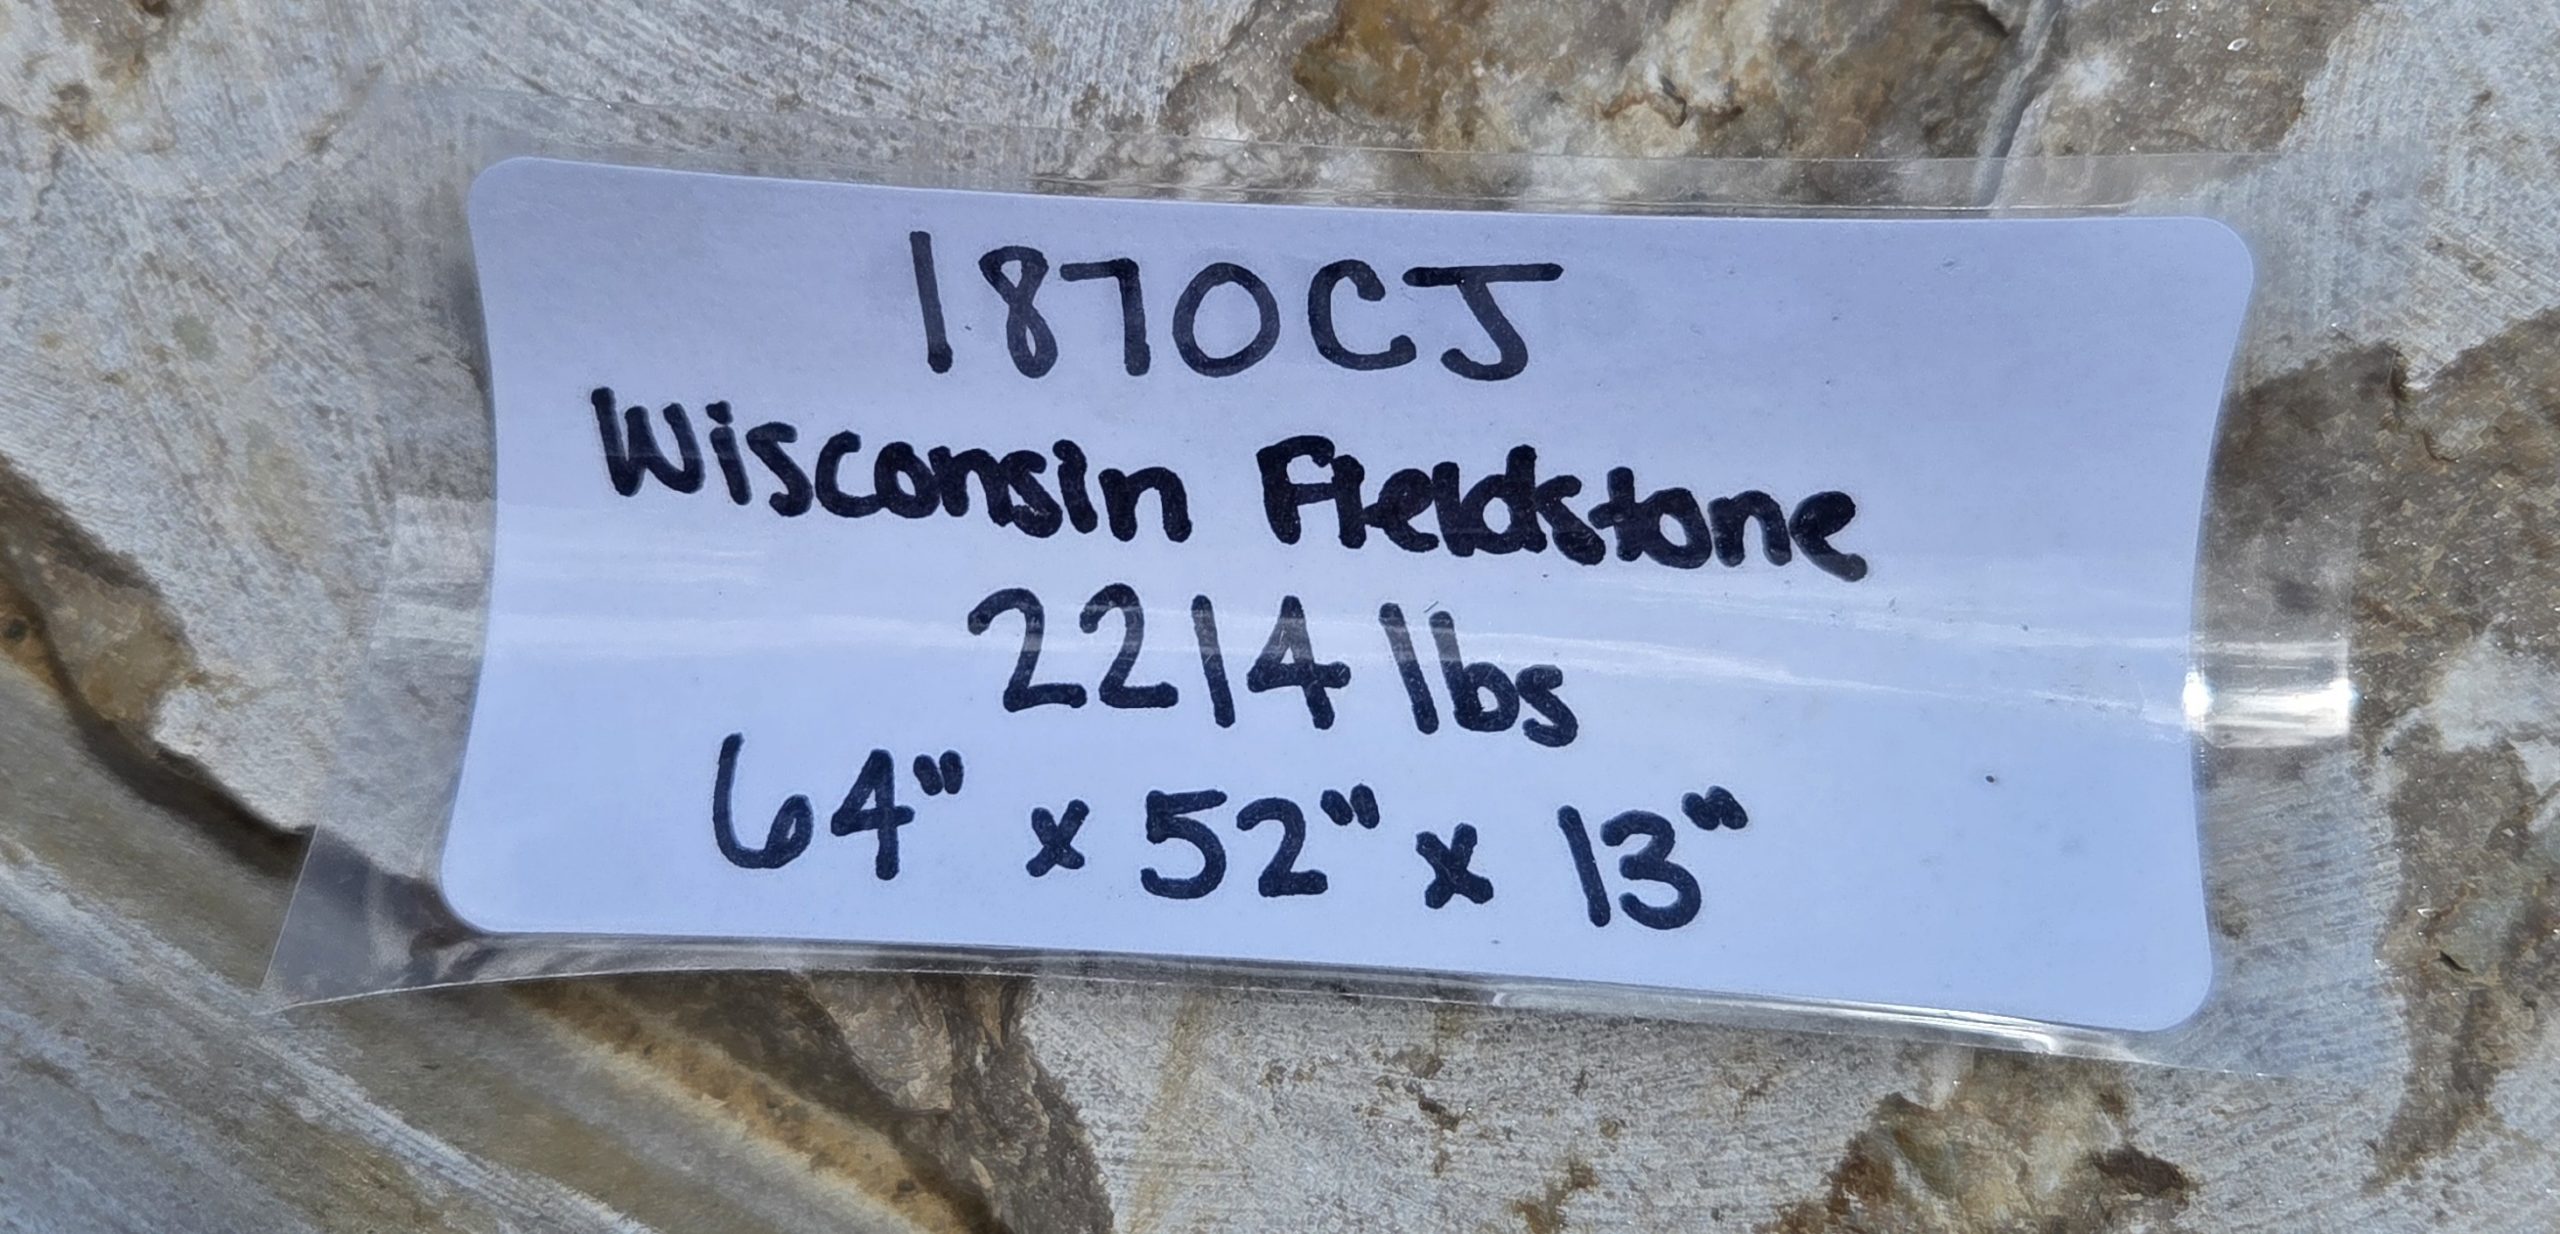 1870CJ
Wisconsin Fieldstone
2214 lbs
64" x 52" x 13"